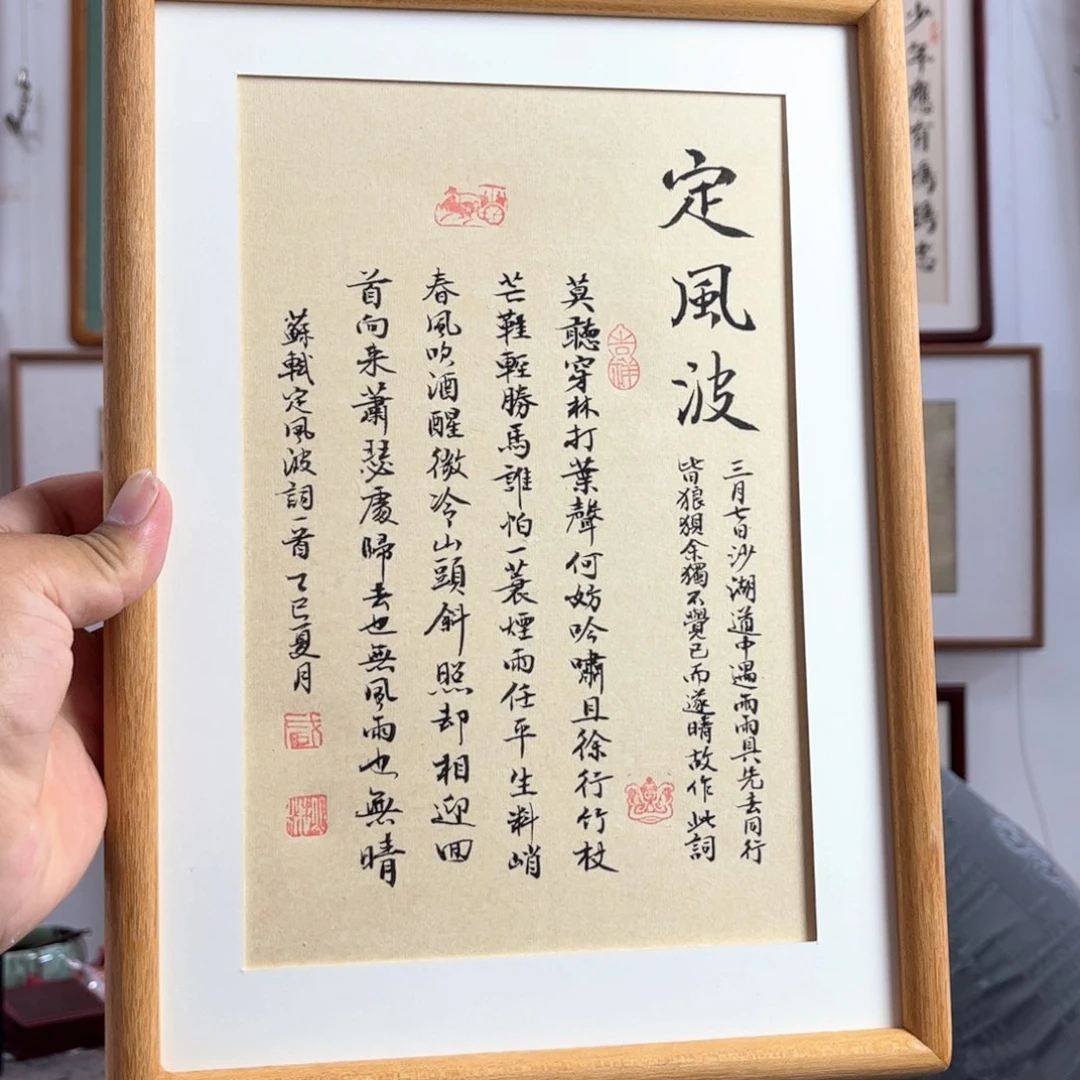 定風波
三月七日沙湖道中遇雨雨具先去同行
皆狼狽余獨不覺已而遂晴故作此詞
吉祥
莫聽穿林打葉聲何妨吟嘯且徐行竹杖
芒鞋輕勝馬誰怕一蓑煙雨任平生料峭
春風吹酒醒微冷山頭斜照却相迎回
首向来蕭瑟處歸去也無風雨也無晴
蘇軾定風波詞一首乙巳夏月
少年應有鴻鵠志